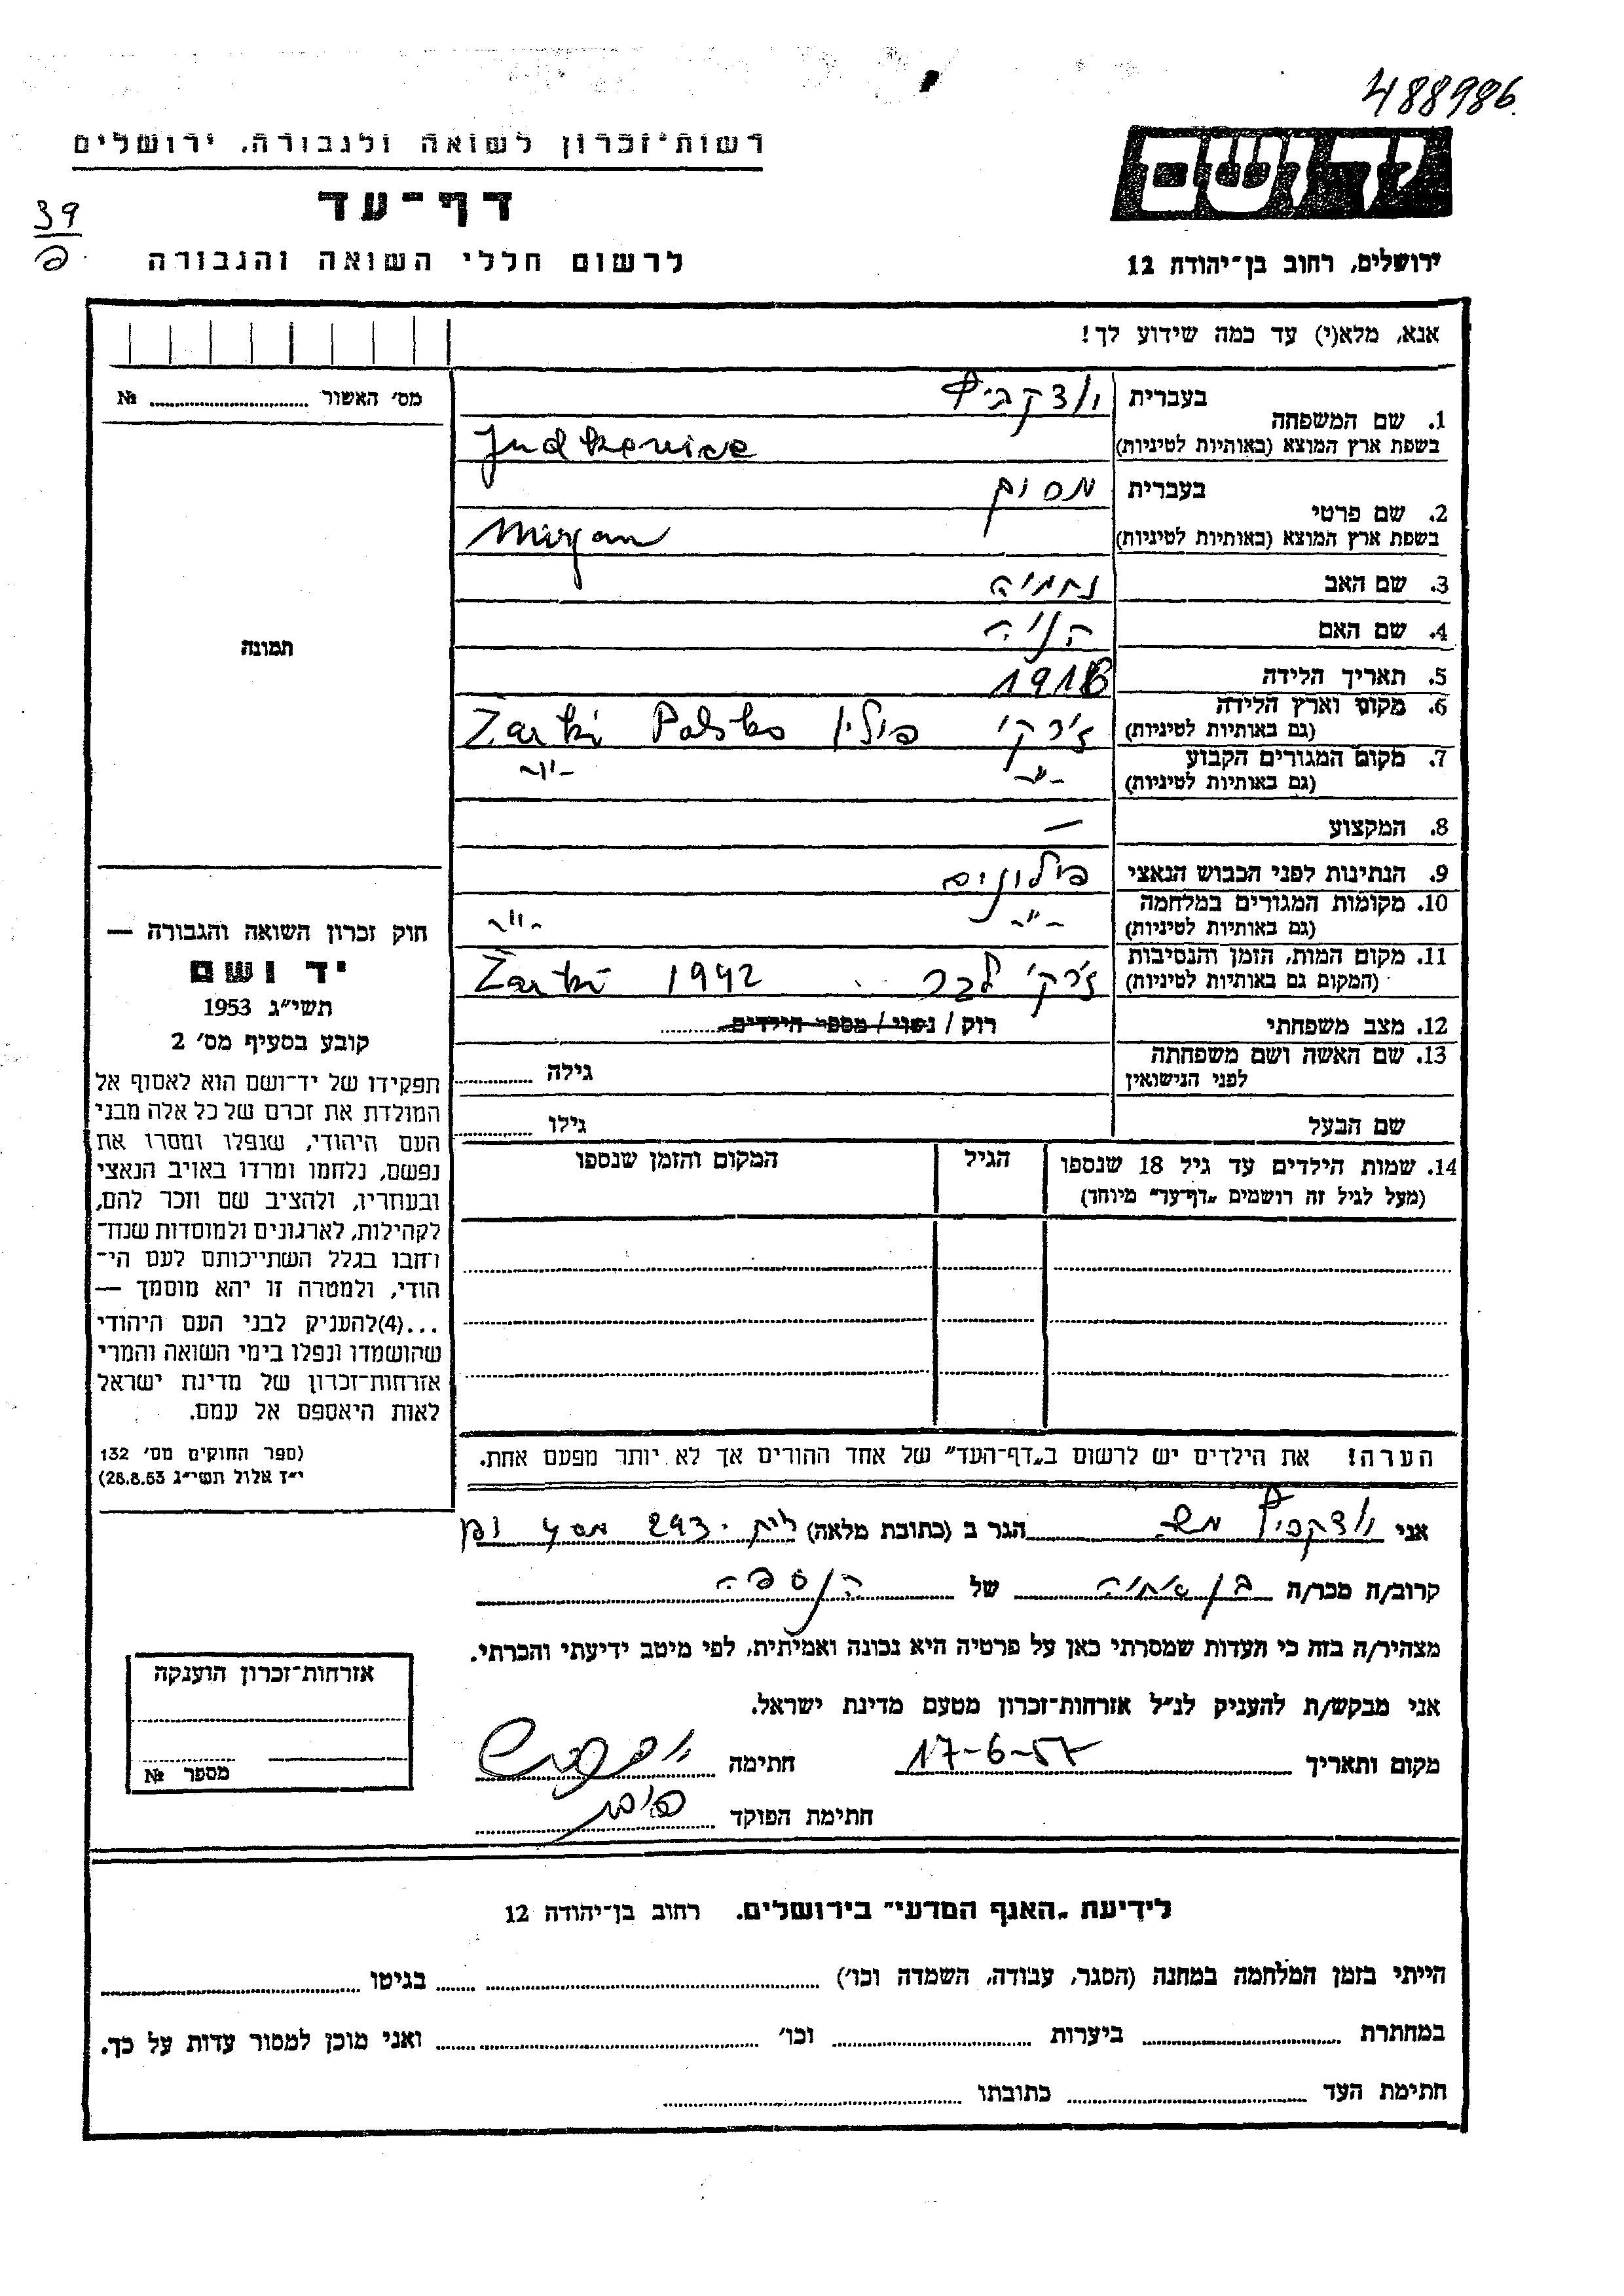 488986
רשות־זכרון לשואה ולגבורה, ירושלים
יד ושם
דף־עד
39
לרשום חללי השואה והגבורה
ירושלים, רחוב בן־יהודה 12
אנא, מלא(י) עד כמה שידוע לך!
מס׳ האשור № ........
תמונה
1. שם המשפחה
בעברית
בשפת ארץ המוצא (באותיות לטיניות) Judkewicz
2. שם פרטי
בעברית
בשפת ארץ המוצא (באותיות לטיניות) Mirjam
3. שם האב נחמיה
4. שם האם
5. תאריך הלידה 1918
6. מקום וארץ הלידה ז׳רקי פולין Polska Zarki
(גם באותיות לטיניות)
7. מקום המגורים הקבוע -״- -״-
(גם באותיות לטיניות)
8. המקצוע —
9. הנתינות לפני הכבוש הנאצי
10. מקומות המגורים במלחמה -״- -״-
(גם באותיות לטיניות)
11. מקום המות, הזמן והנסיבות ז׳רקי 1942 Żarki
(המקום גם באותיות לטיניות)
12. מצב משפחתי רוק / נשוי / מספר הילדים ........
13. שם האשה ושם משפחתה גילה ........
לפני הנישואין
שם הבעל גילו ........
14. שמות הילדים עד גיל 18 שנספו הגיל המקום והזמן שנספו
(מעל לגיל זה רושמים „דף־עד״ מיוחד)
הערה! את הילדים יש לרשום ב„דף־העד״ של אחד ההורים אך לא יותר מפעם אחת.
חוק זכרון השואה והגבורה —
יד ושם
תשי״ג 1953
קובע בסעיף מס׳ 2
תפקידו של יד־ושם הוא לאסוף אל
המולדת את זכרם של כל אלה מבני
העם היהודי, שנפלו ומסרו את
נפשם, נלחמו ומרדו באויב הנאצי
ובעוזריו, ולהציב שם וזכר להם,
לקהילות, לארגונים ולמוסדות שנח־
רחבו בגלל השתייכותם לעם הי־
הודי, ולמטרה זו יהא מוסמך —
...(4)להעניק לבני העם היהודי
שהושמדו ונפלו בימי השואה והמרי
אזרחות־זכרון של מדינת ישראל
לאות היאספם אל עמם.
(ספר החוקים מס׳ 132
י״ד אלול תשי״ג 28.8.53)
אני הגר ב (כתובת מלאה) 293
קרוב/ה מכר/ה של הנספה
מצהיר/ה בזה כי העדות שמסרתי כאן על פרטיה היא נכונה ואמיתית, לפי מיטב ידיעתי והכרתי.
אני מבקש/ת להעניק לנ״ל אזרחות־זכרון מטעם מדינת ישראל.
מקום ותאריך 17-6-57 חתימה
חתימת הפוקד
אזרחות־זכרון הוענקה
מספר №
לידיעת „האגף המדעי״ בירושלים. רחוב בן־יהודה 12
הייתי בזמן המלחמה במחנה (הסגר, עבודה, השמדה וכו׳) ........ בגיטו ........
במחתרת ........ ביערות ........ וכו׳ ........ ואני מוכן למסור עדות על כך.
חתימת העד ........ כתובתו ........